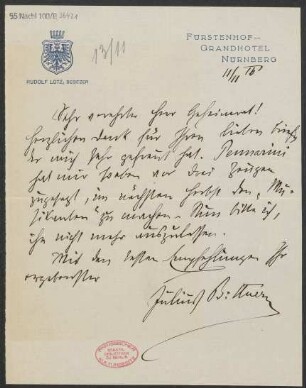 55 Nachl 100/B,
13/11
RUDOLF LOTZ, BESITZER
FÜRSTENHOF-
GRANDHOTEL
NÜRNBERG
11/11
Sehr verehrter Herr Geheimrat!
Herzlichsten Dank für Ihren lieben Brief,
der mich sehr gefreut hat. Pennarini
hat mir soeben vor drei Zeugen
zugesagt, im nächsten Herbst den „Mu-
sikanten“ zu machen. Nun bitte ich,
ihn nicht mehr auszulassen.
Mit den besten Empfehlungen Ihr
ergebenster
Julius Bittner